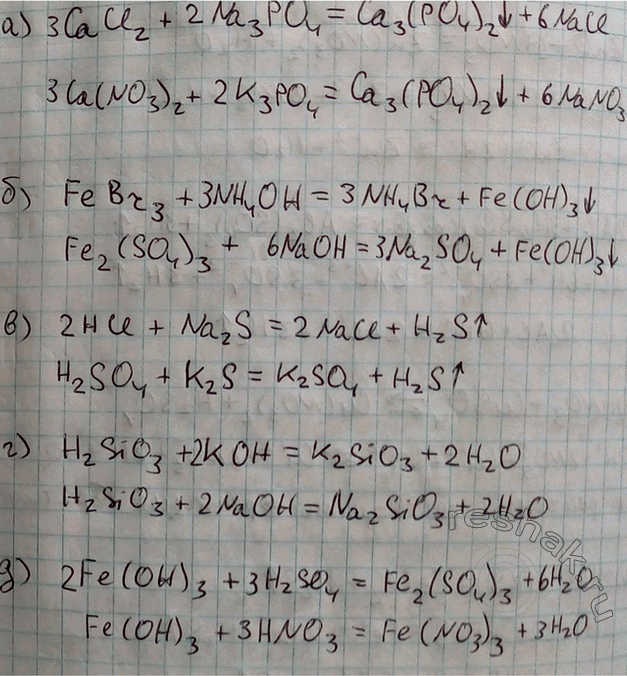 а) 3CaCl₂ + 2Na₃PO₄ = Ca₃(PO₄)₂↓ + 6NaCl
3Ca(NO₃)₂ + 2K₃PO₄ = Ca₃(PO₄)₂↓ + 6NaNO₃
б) FeBr₃ + 3NH₄OH = 3NH₄Br + Fe(OH)₃↓
Fe₂(SO₄)₃ + 6NaOH = 3Na₂SO₄ + Fe(OH)₃↓
в) 2HCl + Na₂S = 2NaCl + H₂S↑
H₂SO₄ + K₂S = K₂SO₄ + H₂S↑
г) H₂SiO₃ + 2KOH = K₂SiO₃ + 2H₂O
H₂SiO₃ + 2NaOH = Na₂SiO₃ + 2H₂O
д) 2Fe(OH)₃ + 3H₂SO₄ = Fe₂(SO₄)₃ + 6H₂O
Fe(OH)₃ + 3HNO₃ = Fe(NO₃)₃ + 3H₂O
reshak.ru